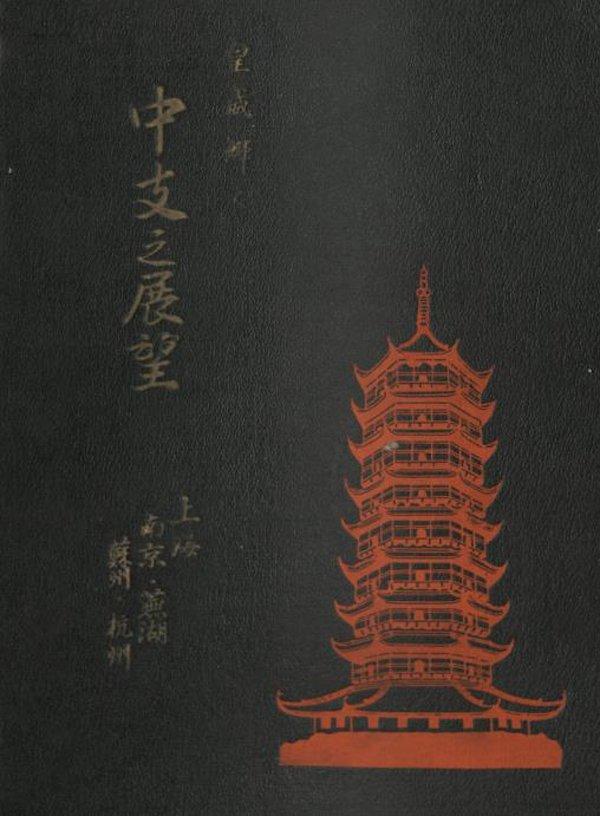 皇威輝く
中支之展望
上海
南京・蕪湖
蘇州・杭州